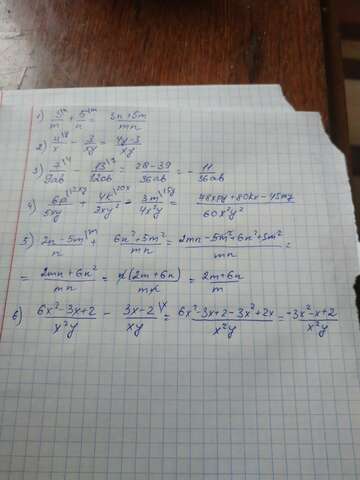 1) 3^{\n}/m + 5^{\m}/n = 3n+5m/mn
2) 4^{\y}/x - 3/xy = 4y-3/xy
3) 7^{\4}/9ab - 13^{\3}/12ab = 28-39/36ab = - 11/36ab
4) 6p^{\12xy}/5xy + 4k^{\20x}/3xy² - 3m^{\15y}/4x²y = 48xpy+80kx-45my/60x²y²
5) 2n-5m^{\m}/n + 6n²+5m²/mn = 2mn-5m²+6n²+5m²/mn =
= 2mn+6n²/mn = n(2m+6n)/mn = 2m+6n/m
6) 6x²-3x+2/x²y - 3x-2^{\x}/xy = 6x²-3x+2-3x²+2x/x²y = -3x²-x+2/x²y